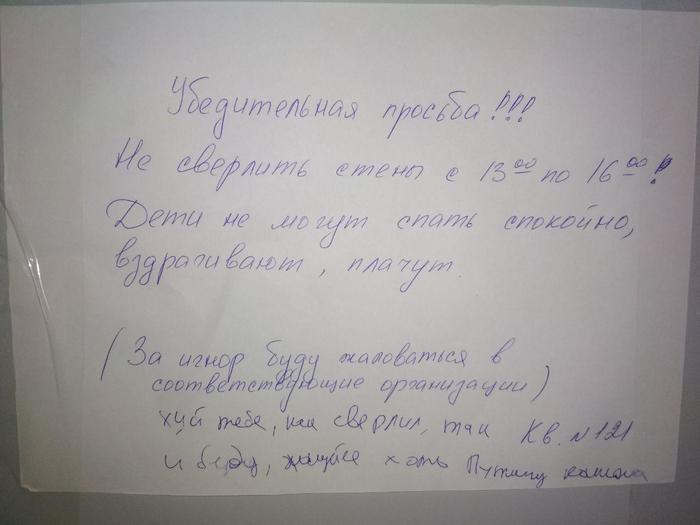 Убедительная просьба!!!
Не сверлить стены с 13⁰⁰ по 16⁰⁰!
Дети не могут спать спокойно,
вздрагивают, плачут.
(За игнор буду жаловаться в
соответствующие организации)
хуй тебе, как сверлил, так
Кв. N 121
и буду, хоть Путину